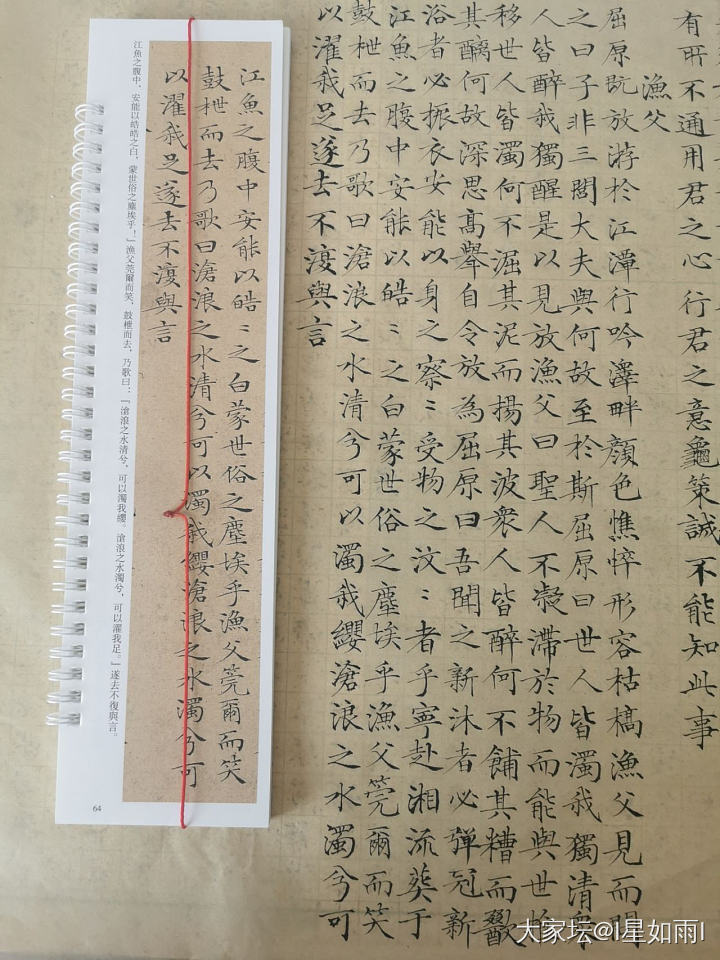 有所不通用君之心行君之意龜策誠不能知此事
漁父
屈原既放游於江潭行吟澤畔顏色憔悴形容枯槁漁父見而問
之曰子非三閭大夫與何故至於斯屈原曰世人皆濁我獨清衆
人皆醉我獨醒是以見放漁父曰聖人不凝滯於物而能與世
移世人皆濁何不淈其泥而揚其波衆人皆醉何不餔其糟而歠
其醨何故深思高舉自令放為屈原曰吾聞之新沐者必彈冠新
浴者必振衣安能以身之察〻受物之汶〻者乎寧赴湘流葬于
江魚之腹中安能以皓〻之白蒙世俗之塵埃乎漁父莞爾而笑
鼓枻而去乃歌曰滄浪之水清兮可以濁我纓滄浪之水濁兮可
以濯我足遂去不復與言
江魚之腹中安能以皓〻之白蒙世俗之塵埃乎漁父莞爾而笑
鼓枻而去乃歌曰滄浪之水清兮可以濁我纓滄浪之水濁兮可
以濯我足遂去不復與言
江魚之腹中，安能以皓皓之白，蒙世俗之塵埃乎！」漁父莞爾而笑，鼓枻而去，乃歌曰：「滄浪之水清兮，可以濁我纓。滄浪之水濁兮，可以濯我足。」遂去不復與言。
64
大家坛@I星如雨I